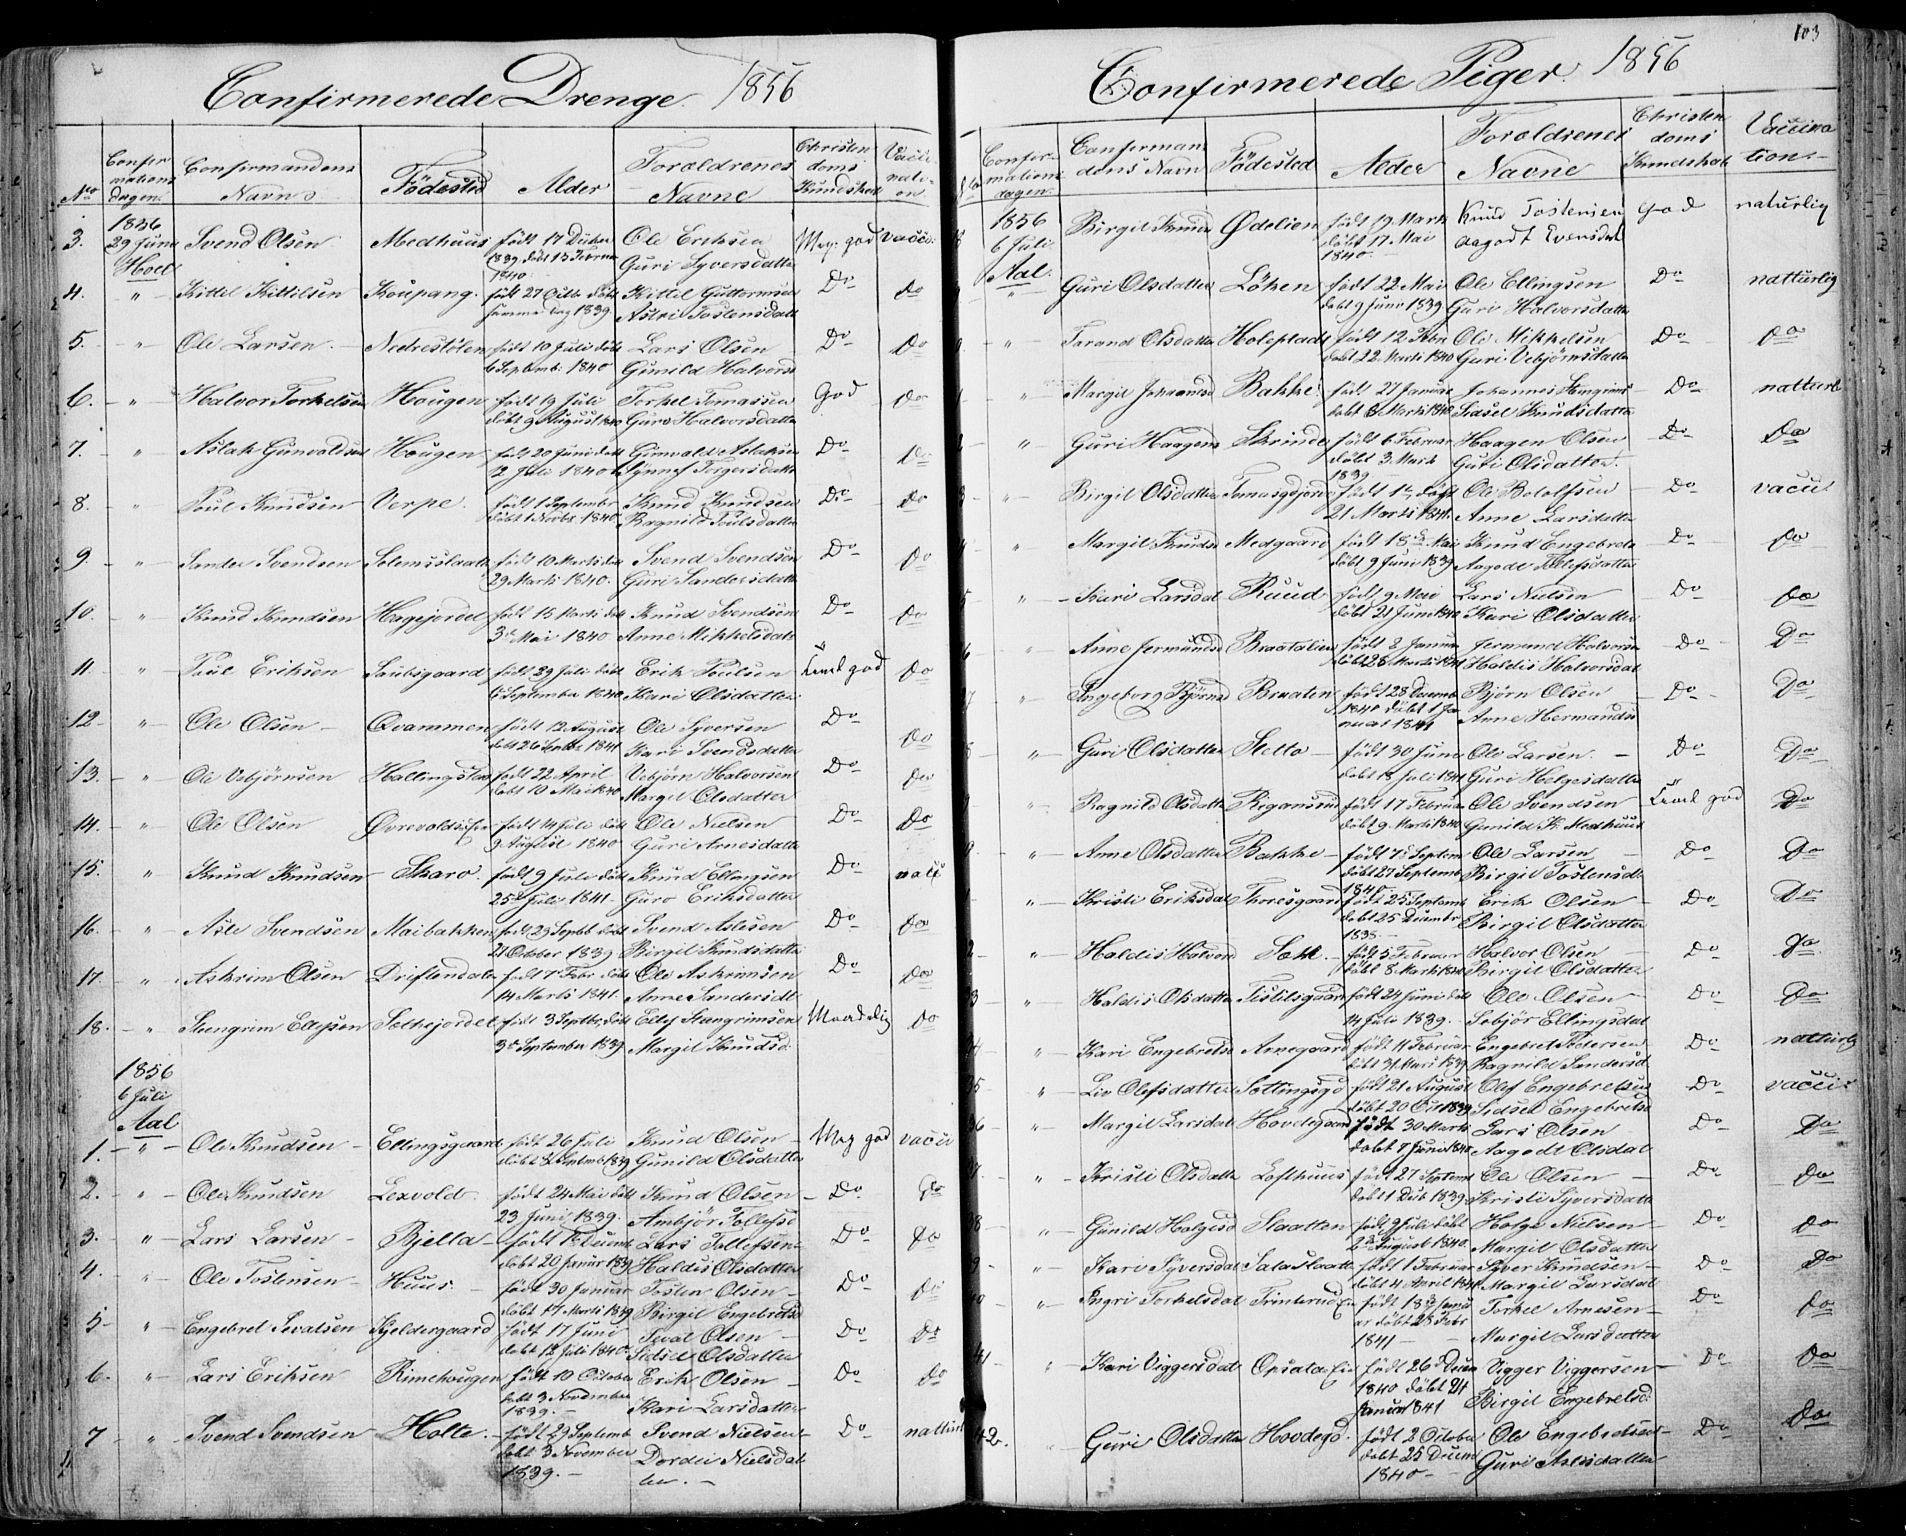 Confirmerede Drenge. 1856
No
Confirmations dagen.
Confirmandens Navne
Födested
Alder
Foraldrenes Navne
Christendoms Kundskab
Vaccination.
1856
3. 29 Juni Svend Olsen Medhuus födt 17 Decber Ole Eriksen Meg. god vacci.
Hoel 1839, döbt 13 Februar 1840 Guri Syversdatter
4. " Kittil Kittilsen Koupang. födt 27 Octb. döbt Kittil Guttormsen Do Do
samme Dag 1839 Astri Tostensdatt
5. " Ole Larsen Nedrestölen födt 10 Juli döbt Lars Olsen Do Do
6 Septemb: 1840 Gunild Halvorsd
6. " Halvor Torkelsen Hougen födt 19 Juli Torkel Tomassen God Do
döbt 9 August 1840 Guro Halvorsdatter
7. " Aslak Gunvaldsen Hougen födt 20 Juni döbt Gunvald Aslaksen Do Do
12 Juli 1840 Synnev Torgersdatt
8. " Poul Knudsen Verpe. födt 1 September Knud Knudsen Do Do
döbt 1 Novbr 1840 Ragnild Poulsdatter
9. " Sander Svendsen Solemsslaatt födt 10 Marts döbt Svend Svendsen Do Do
29 Marts 1840. Guri Sandersdatter
10. " Knud Knudsen Hagejordet födt 15 Marts döbt Knud Svendsen Do Do
3de Mai 1840 Anne Mikkelsdatt
11. " Poul Eriksen Saubsgaard födt 29 Juli döbt Erik Poulsen Temel god Do
6 September 1840 Kari Olsdatter
12 " Ole Olsen Qvammen födt 12 August Ole Syversen Do Do
döbt 26 Septbr 1841 Kari Svendsdatter
13. " Ole Vebjörnsen Hallingstad födt 22 April Vebjörn Halvorsen Do Do
döbt 10 Mai 1840 Margit Olsdatter
14. " Ole Olsen födt 14 Juli döbt Ole Nielsen Do Do
9 August 1840 Guri Arnesdatter
15. " Knud Knudsen Skaro. födt 9 Juli döbt Knud Ellingsen Do
25de Juli 1841 Guro Eriksdatter
16. " Asle Svendsen Maibakken födt 29 Septb döbt Svend Aslesen Do Do
21 October 1839 Birgit Knudsdatter
17. " Askrim Olsen födt 7 Febr. döbt Ole Askrimsen Do Do
14 Marts 1841. Anne Sandersdt
18. " Stengrim Ellefsen Sethejordet födt 3 Septbr, döbt Ellef Stengrimsen Maadelig Do
3de September 1839 Margit Knudsd:
1856
6 Juli
Aal
1. " Ole Knudsen Ellingsgaard födt 26 Juli Knud Olsen Meg god vacci
döbt 8 Septemb 1839 Gunild Olsdatter
2. " Ole Knudsen Lexvold födt 24 Mai döbt Knud Olsen Do Do
23 Juni 1839. Ambjör Tollefsd
3. " Lars Larsen Bjella födt 1ste Decemb Lars Tollefsen Do Do
döbt 20 Januar 1839 Haldis Olsdatter
4. " Ole Tostensen Huus. födt 30 Januar Tosten Olsen Do Do
döbt 17 Marts 1839 Birgit Engebretsd
5 " Engebret Sevatsen Kjeldergaard födt 17 Juni Sevat Olsen Do Do
döbt 12 Juli 1840 Sidsel Olsdatter
6. " Lars Eriksen Rimehougen födt 10 October Erik Olsen Do Do
döbt 3 November 1839. Kari Larsdatter
7 " Svend Svendsen Holte. födt 29 Septemb Svend Nielsen Do natturl
döbt 3 November 1839. Dordei Nielsdatter.
103
Confirmerede Piger. 1856
Confirmations dagen.
Confirmandens Navn
Födested
Alder
Foraldrenes Navne
Christendoms Kundskab
Vaccination.
1856
6 Juli Birgit Knuds Ødelien födt 19 Marts Knud Tostensen God naturlig
Aal. döbt 17 Mai 1840 Aagodt Eversdat
" Guri Olsdatter Löken födt 22 Mai Ole Ellingsen Do natturlig
döbt 9 Juni 1839 Guri Halvorsdatter
" Tarand Olsdatter Holeplads födt 12 Febr Ole Mikkelsen Do Do
döbt 22 Marts 1840 Guri Vebjörnsdatter
" Margit Johannesd Bakke födt 27 Januar Johannes Stengrims Do natturl
döbt 8 Marts 1840 Sidsel Knudsdatter
" Guri Haagens Skrinde födt 6 Februar Haagen Olsen Do Do
döbt 3 Marts 1839 Guri Olsdatter.
" Birgit Olsdatter Tomasgjord födt 1ste, döbt Ole Botolfsen Do vacci
21 Marts 1841. Anne Larsdatter
" Margit Knudsd Medgaard födt 18de Mai Knud Engebrets Do Do
döbt 9 Juni 1839 Aagodt Tollefsdatter
" Kari Larsdat Ruud födt 9 Mai Lars Nielsen Do Do
döbt 21 Juni 1840 Kari Olsdatter
" Anne Jermundsd Braatalien födt 2 Januar Jermund Halvorsen Do Do
döbt 28 Marts 1841 Haldis Halvorsdat
" Ingeborg Björnsd Braaten födt 28 Decemb Björn Olsen Do Do
1840 döbt 1 Januar 1841 Anne Hermandsd
" Guri Olsdatter Sletto födt 30 Juni Ole Larsen. Do Do
döbt 18 Juli 1841 Guri Helgesdatter
" Ragnild Olsdatter födt 17 Februar Ole Svendsen Temel god Do
döbt 9 Marts 1840 Gunild K. Medhuus
" Anne Olsdatter Bakke födt 7de Septem Ole Larsen Do Do
döbt 27 Septemb 1840 Birgit Tostensd.
" Kristi Eriksdat Thoresgaard födt 25 Septemb Erik Olsen Do Do
döbt 25 Decembr 1838 Birgit Olsdatter
" Haldis Halvord födt 5 Februar Halvor Olsen Do Do
döbt 8 Marts 1840 Birgit Olsdatter
" Haldis Olsdatter Tistilsgaard födt 24 Juni döbt Ole Olsen Do Do
14 Julie 1839. Sebjör Ellingsdat
" Kari Engebretsd Arnegaard födt 11 Februar Engebret Pedersen Do natturlig
döbt 31 Mars 1839 Ragnild Sandersd
" Liv Olefsdatter Settingsgd födt 21 August Olef Engebretsen Do vacci
döbt 20 Oct 1839 Sidsel Engebretsd
36 " Margit Larsdat Hovdegaard födt 30 Marts Lars Olsen Do Do
döbt 7 Juni 1840 Aagodt Olsdat
" Kristi Olsdatte Lofthuus födt 27 Septemb Ole Olsen Do Do
döbt 1 Decb 1839 Kristi Syversdatter
" Gunild Holgesd Slaatten födt 9 Juli döbt Holge Nielsen Do Do
2den August 1840. Margit Olsdatter
" Kari Syversdat Salaslaatt födt 1 Februar Syver Knudsen Do Do
döbt 4 April 1841 Margit Larsdat
" Ingri Torkelsdat Trinterud Ei födt 18de Januar Torkel Arnesen Do Do
döbt 28 Febr 1841 Margit Larsdatter
41 " Kari Viggersdat Opsata Ei födt 26de Decem Vigger Viggersen Do Do
1840 döbt 24 Januar 1841 Birgit Engebretsd:
42. " Guri Olsdatter Hovdegd. födt 2 October Ole Engebretsen Do Do
döbt 25 Decem 1840 Guri Aslesdatter